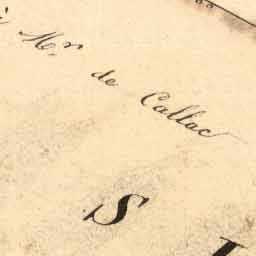 à Mr. de Callac
S